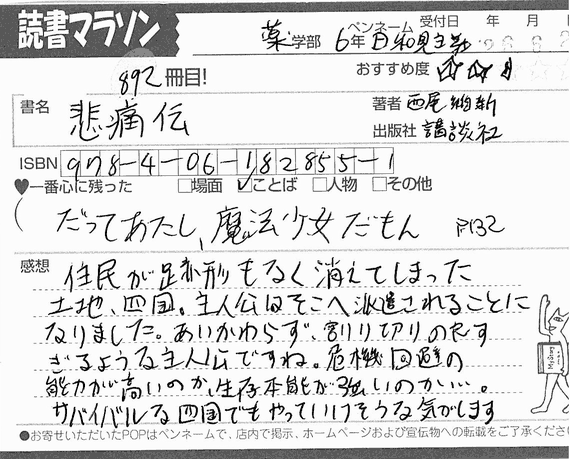 読書マラソン
薬学部 6年 ペンネーム 日和見主義 受付日 年 月
892冊目! おすすめ度 ☆☆
書名 悲痛伝 著者 西尾維新
出版社 講談社
ISBN 978-4-06-182855-1
♥一番心に残った □場面 ☑ことば □人物 □その他
だってあたし、魔法少女だもん P132
感想
住民が跡形もなく消えてしまった
土地、四国。主人公はそこへ派遣されることに
なりました。あいかわらず、割り切りのよす
ぎるような主人公ですね。危機回避の
能力が高いのか、生存本能が強いのか…。
サバイバルな四国でもやっていけそうな気がします
●お寄せいただいたPOPはペンネームで、店内で掲示、ホームページおよび宣伝物への転載をご了承くだ